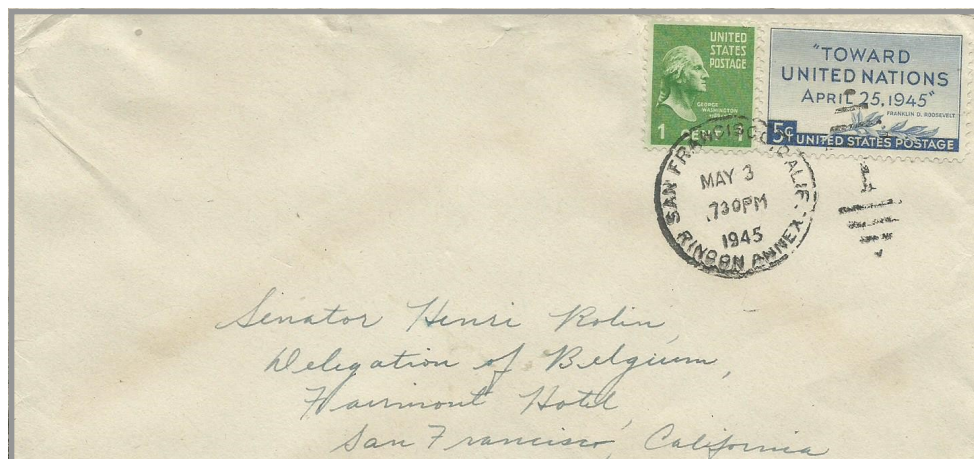 UNITED
STATES
POSTAGE
GEORGE
WASHINGTON
1 CENT 1
"TOWARD
UNITED NATIONS
APRIL 25, 1945"
FRANKLIN D. ROOSEVELT
5¢ UNITED STATES POSTAGE
SAN FRANCISCO, CALIF.
MAY 3
730PM
1945
RINCON ANNEX
Senator Henri Rolin,
Delegation of Belgium,
Fairmont Hotel,
San Francisco, California